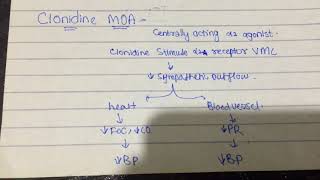 Clonidine MOA -
Centrally acting α2 agonist.
Clonidine Stimule α2 receptor VMC
↓ Sympathetic outflow
heart Blood vessel
↓ FOC, ↓CO ↓PR
↓BP ↓BP